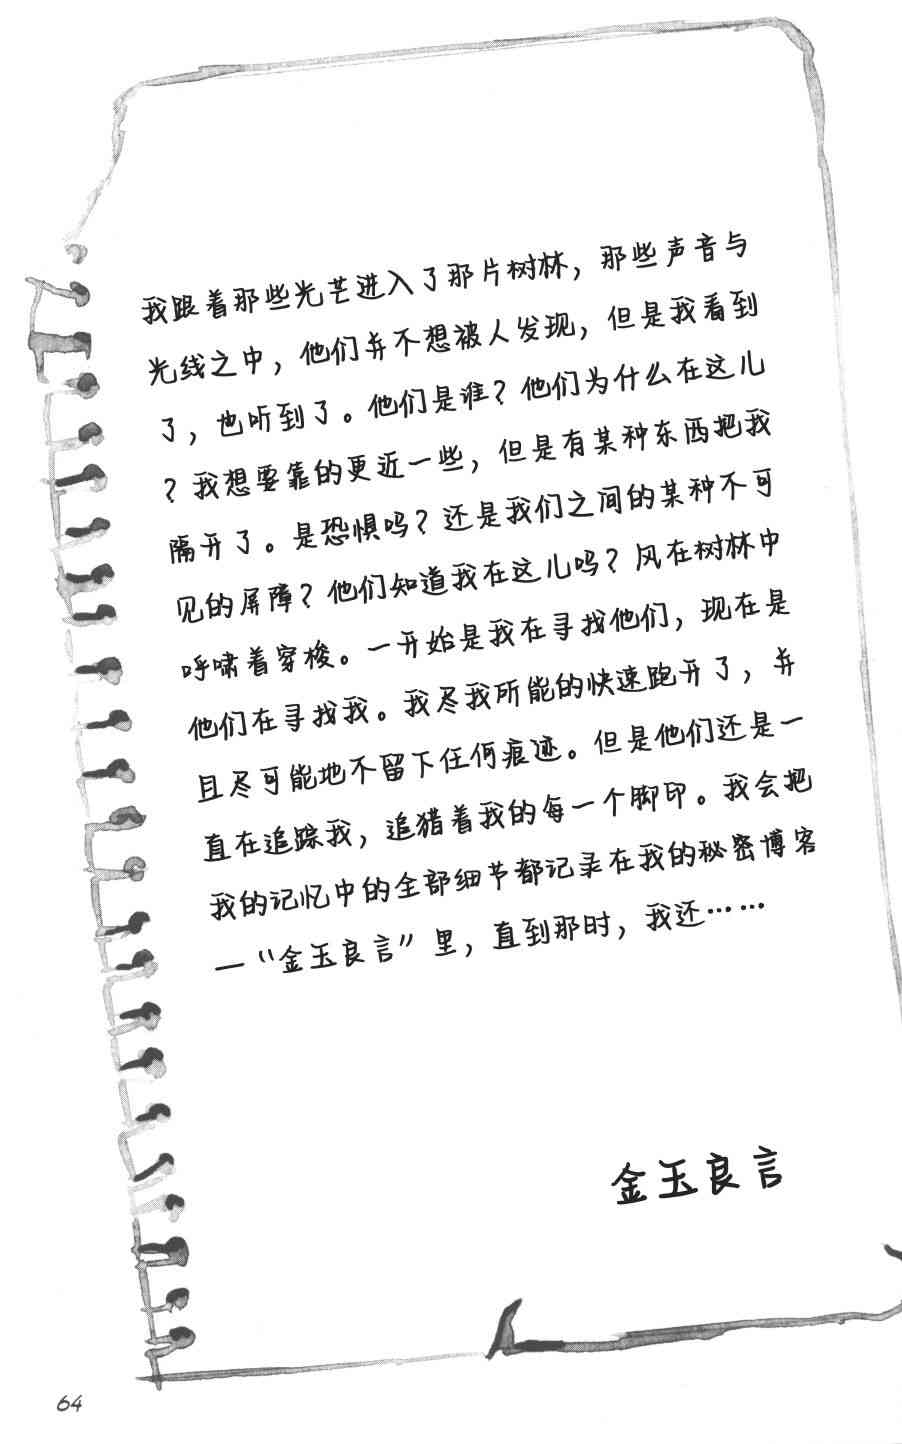 我跟着那些光芒进入了那片树林，那些声音与
光线之中，他们并不想被人发现，但是我看到
了，也听到了。他们是谁？他们为什么在这儿
？我想要靠的更近一些，但是有某种东西把我
隔开了。是恐惧吗？还是我们之间的某种不可
见的屏障？他们知道我在这儿吗？风在树林中
呼啸着穿梭。一开始是我在寻找他们，现在是
他们在寻找我。我尽我所能的快速跑开了，并
且尽可能地不留下任何痕迹。但是他们还是一
直在追踪我，追猎着我的每一个脚印。我会把
我的记忆中的全部细节都记录在我的秘密博客
—“金玉良言”里，直到那时，我还……
金玉良言
64